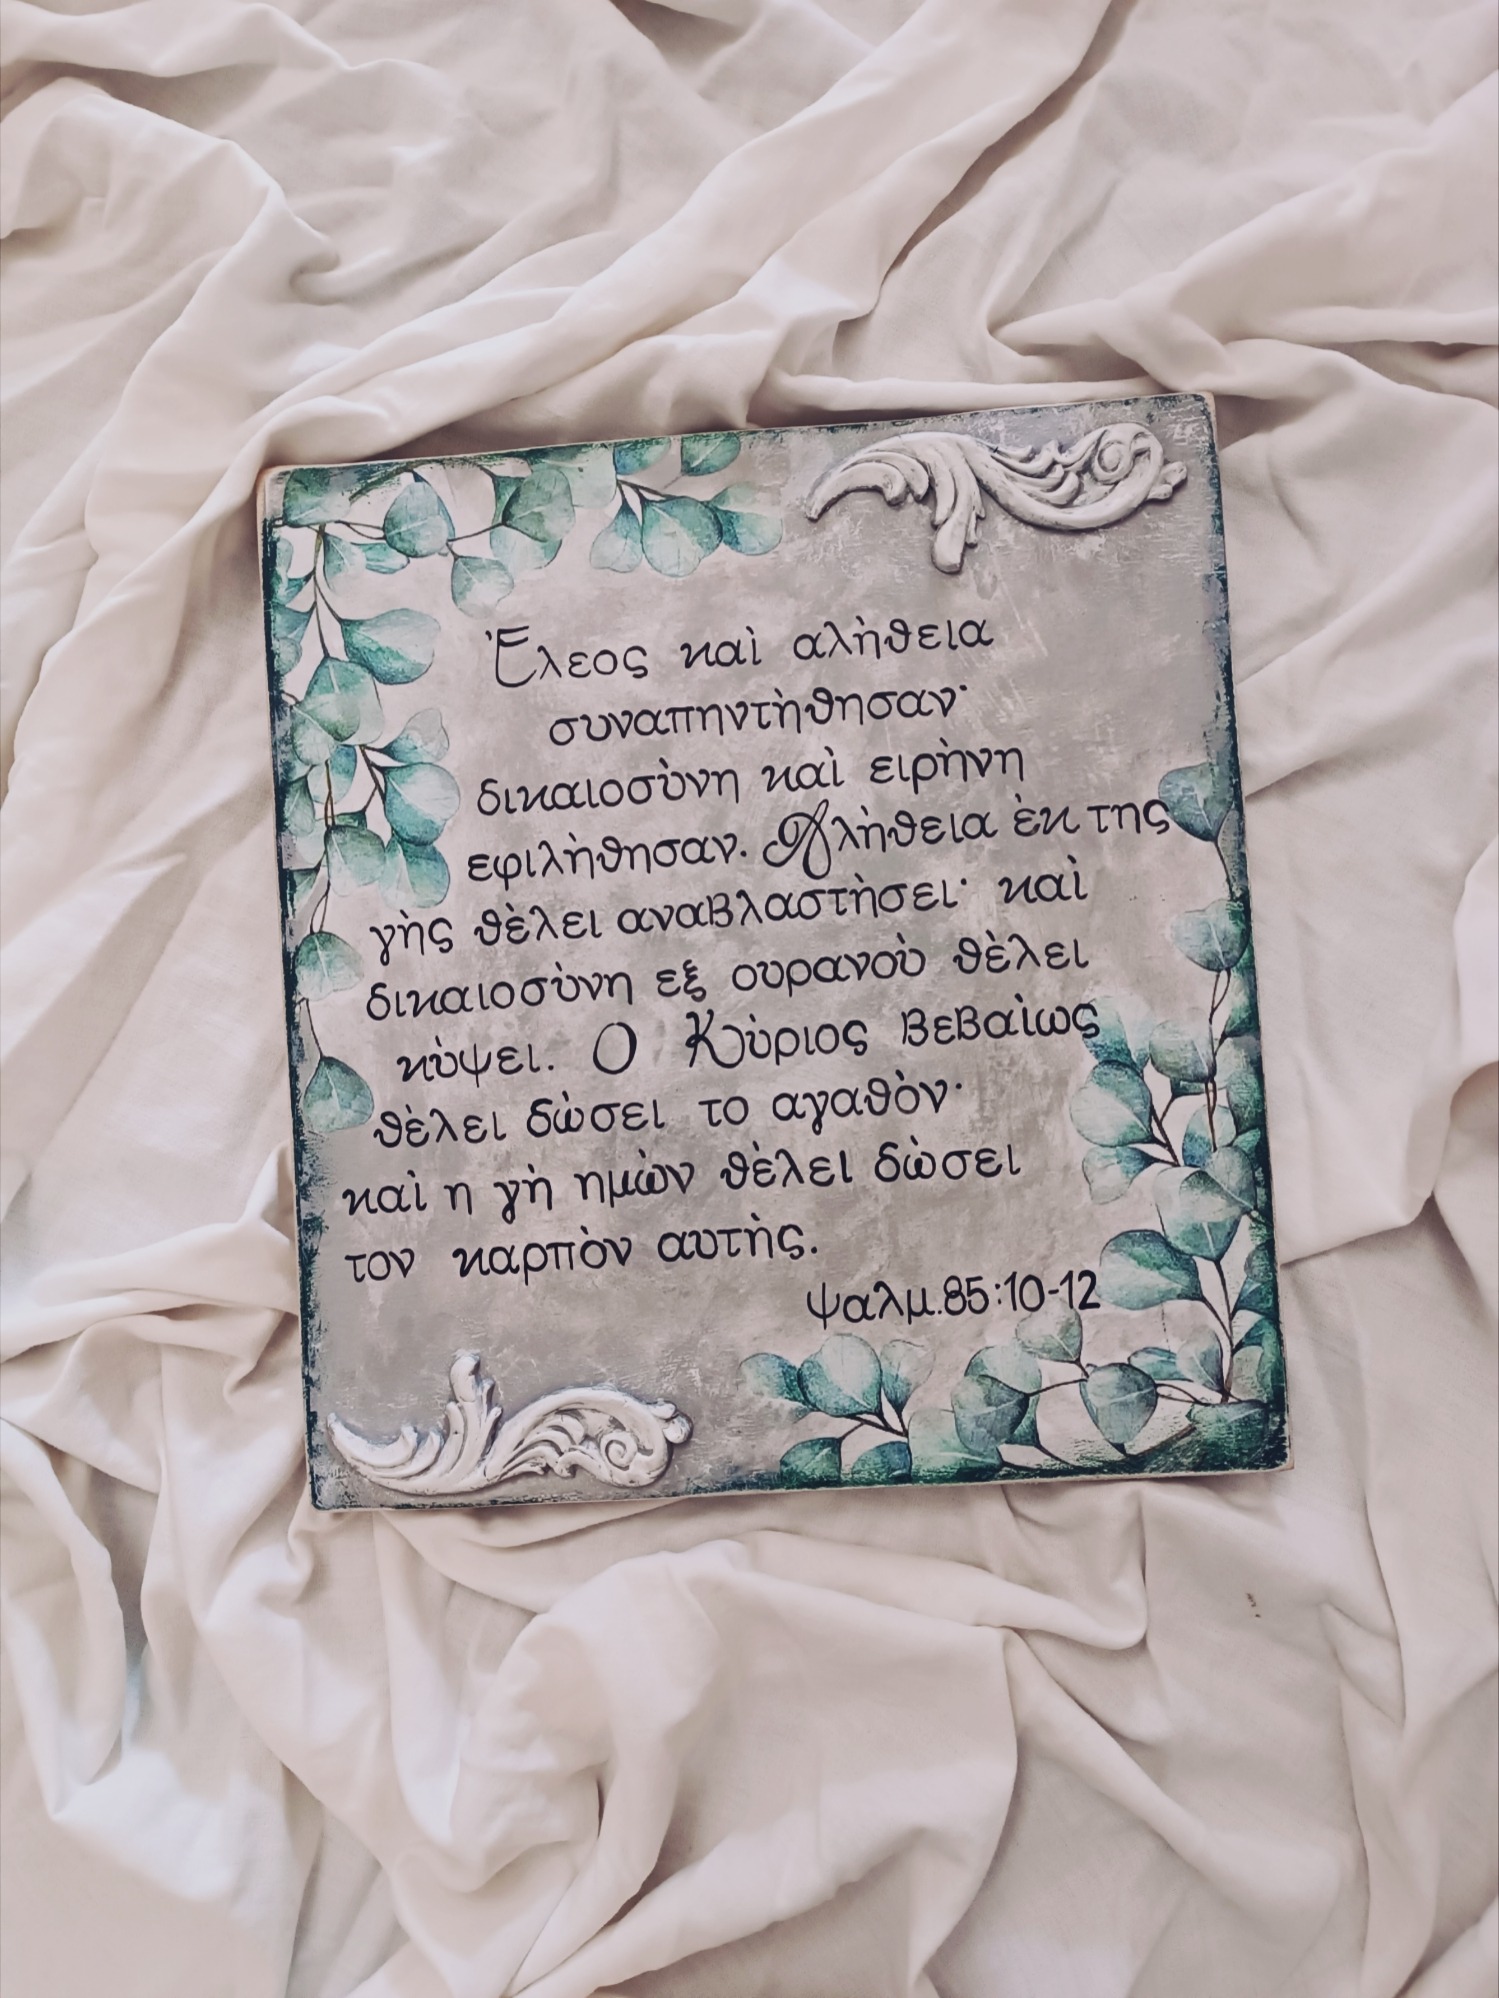 Έλεος καὶ αλὴθεια
συναπηντὴθησαν·
δικαιοσὺνη καὶ ειρὴνη
εφιλὴθησαν. Αλὴθεια ὲκ της
γὴς θὲλει αναβλαστὴσει· καὶ
δικαιοσὺνη εξ ουρανοὺ θὲλει
κὺψει. Ο Κὺριος βεβαὶως
θὲλει δὼσει το αγαθὸν·
καὶ η γὴ ημὼν θὲλει δὼσει
τον καρπὸν αυτὴς.
Ψαλμ.85:10-12